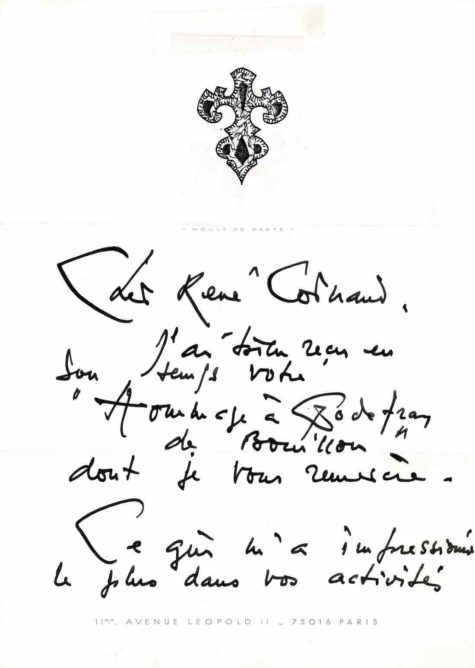 " MOULT DE PARTS "
Cher René Coinaud,
J'ai bien reçu en
son temps votre
" Hommage à Godefroy
de Bouillon "
dont je vous remercie.
Ce qui m'a impressionné
le plus dans vos activités
11bis, AVENUE LÉOPOLD II _ 75016 PARIS